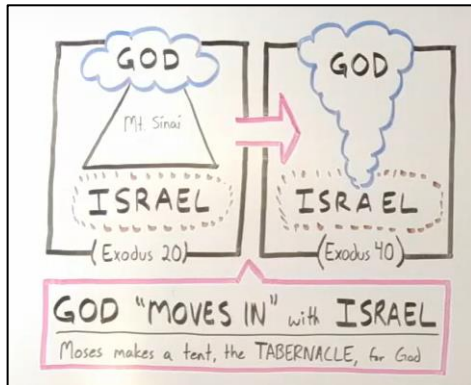 GOD
Mt. Sinai
ISRAEL
(Exodus 20)
GOD
ISRAEL
(Exodus 40)
GOD "MOVES IN" with ISRAEL
Moses makes a tent, the TABERNACLE, for God